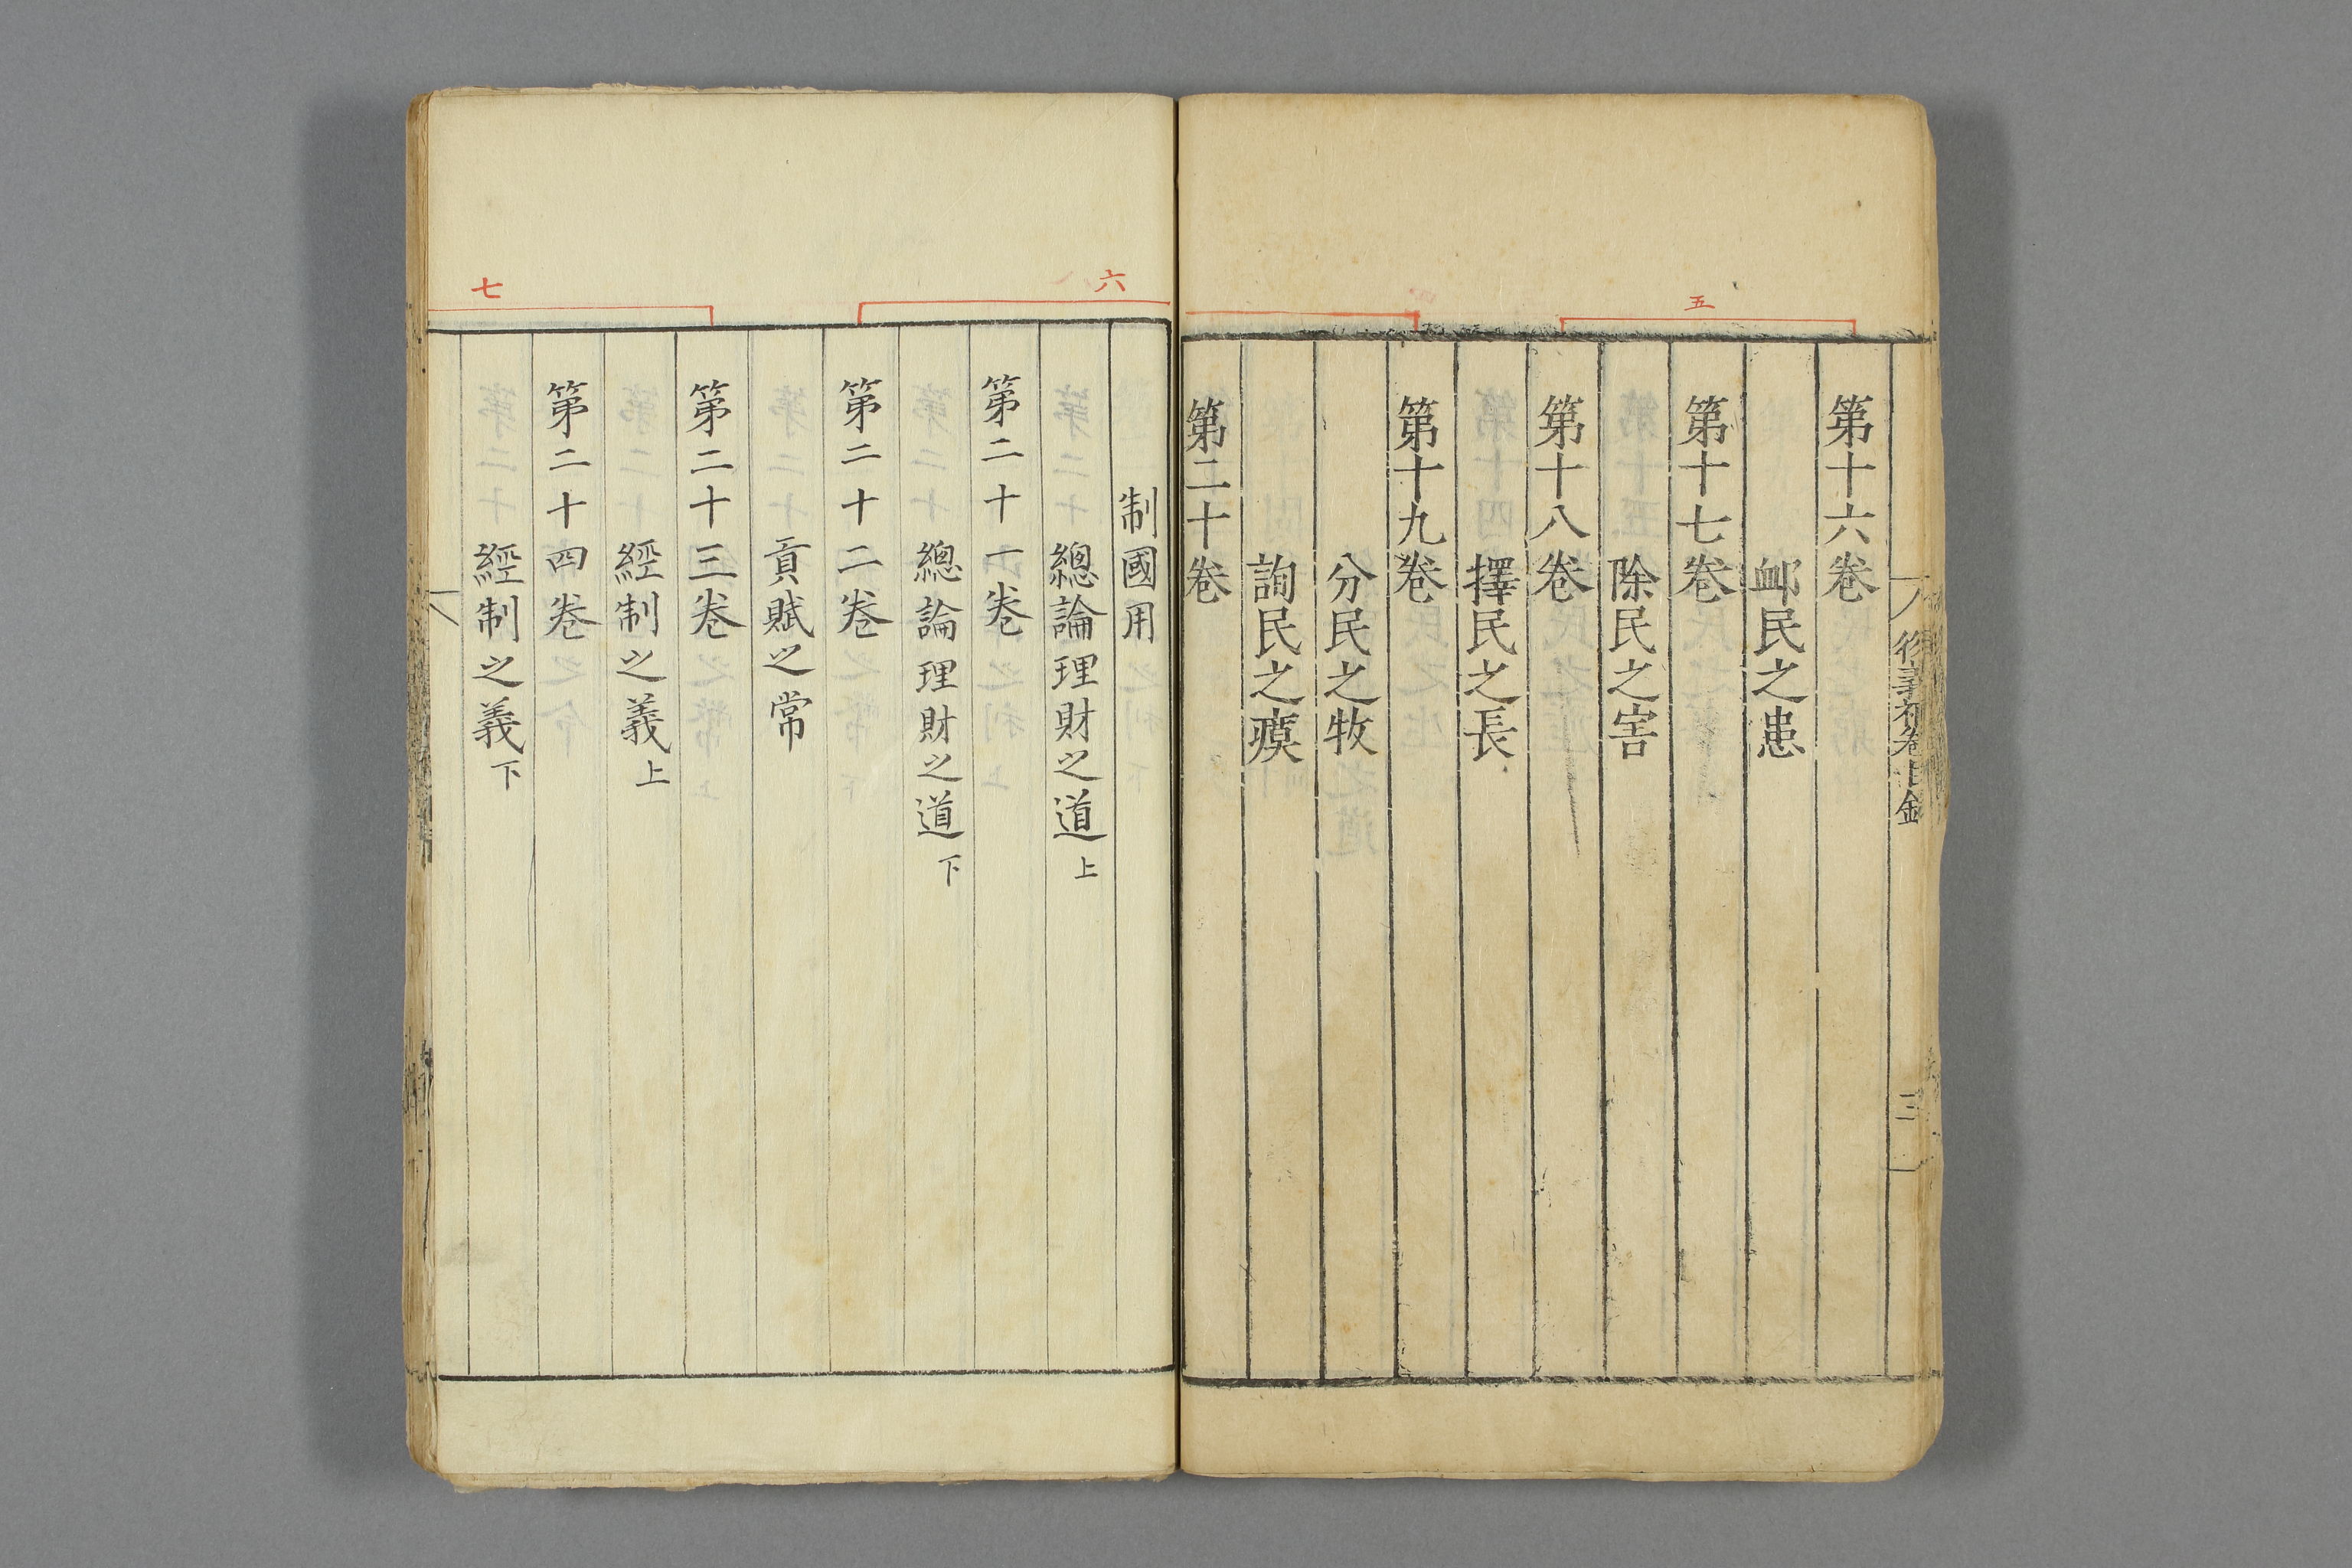 五
第十六卷
卹民之患
第十七卷
除民之害
第十八卷
擇民之長
第十九卷
分民之牧
詢民之瘼
第二十卷
三
六
七
制國用
總論理財之道上
第二十一卷
總論理財之道下
第二十二卷
貢賦之常
第二十三卷
經制之義上
第二十四卷
經制之義下